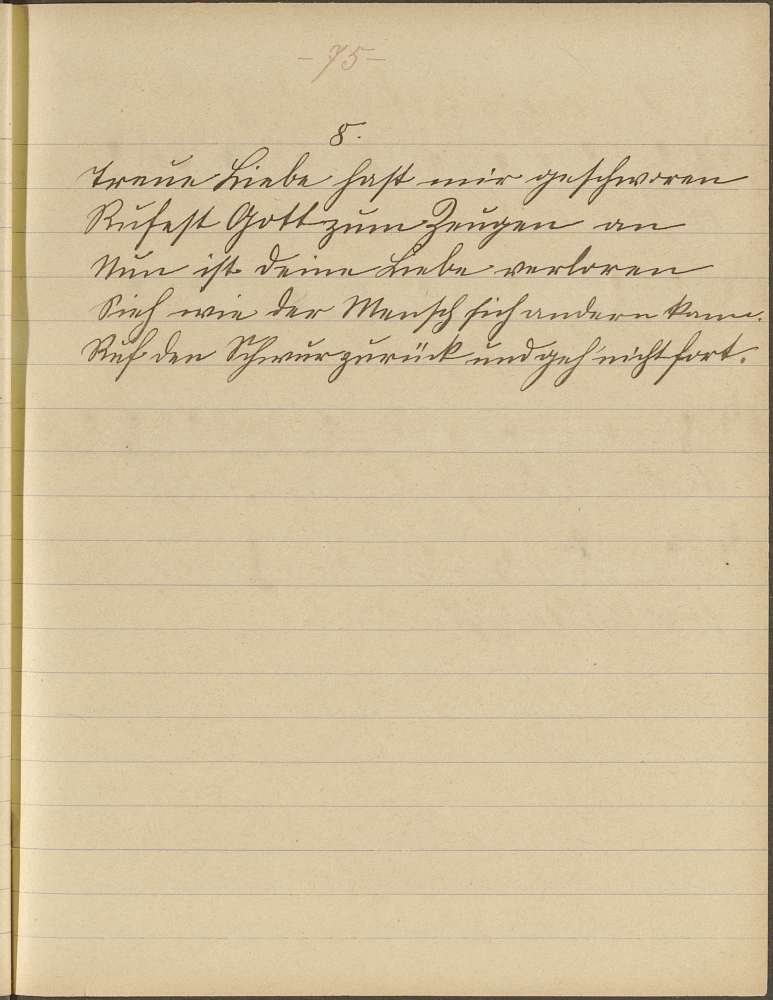 - 75 -
8.
Treue Liebe hast mir geschworen
Rufest Gott zum Zeugen an
Nun ist deine Liebe verloren
Sieh wie der Mensch sich andern kann.
Ruf den Schwur zurück und geh' nicht fort.